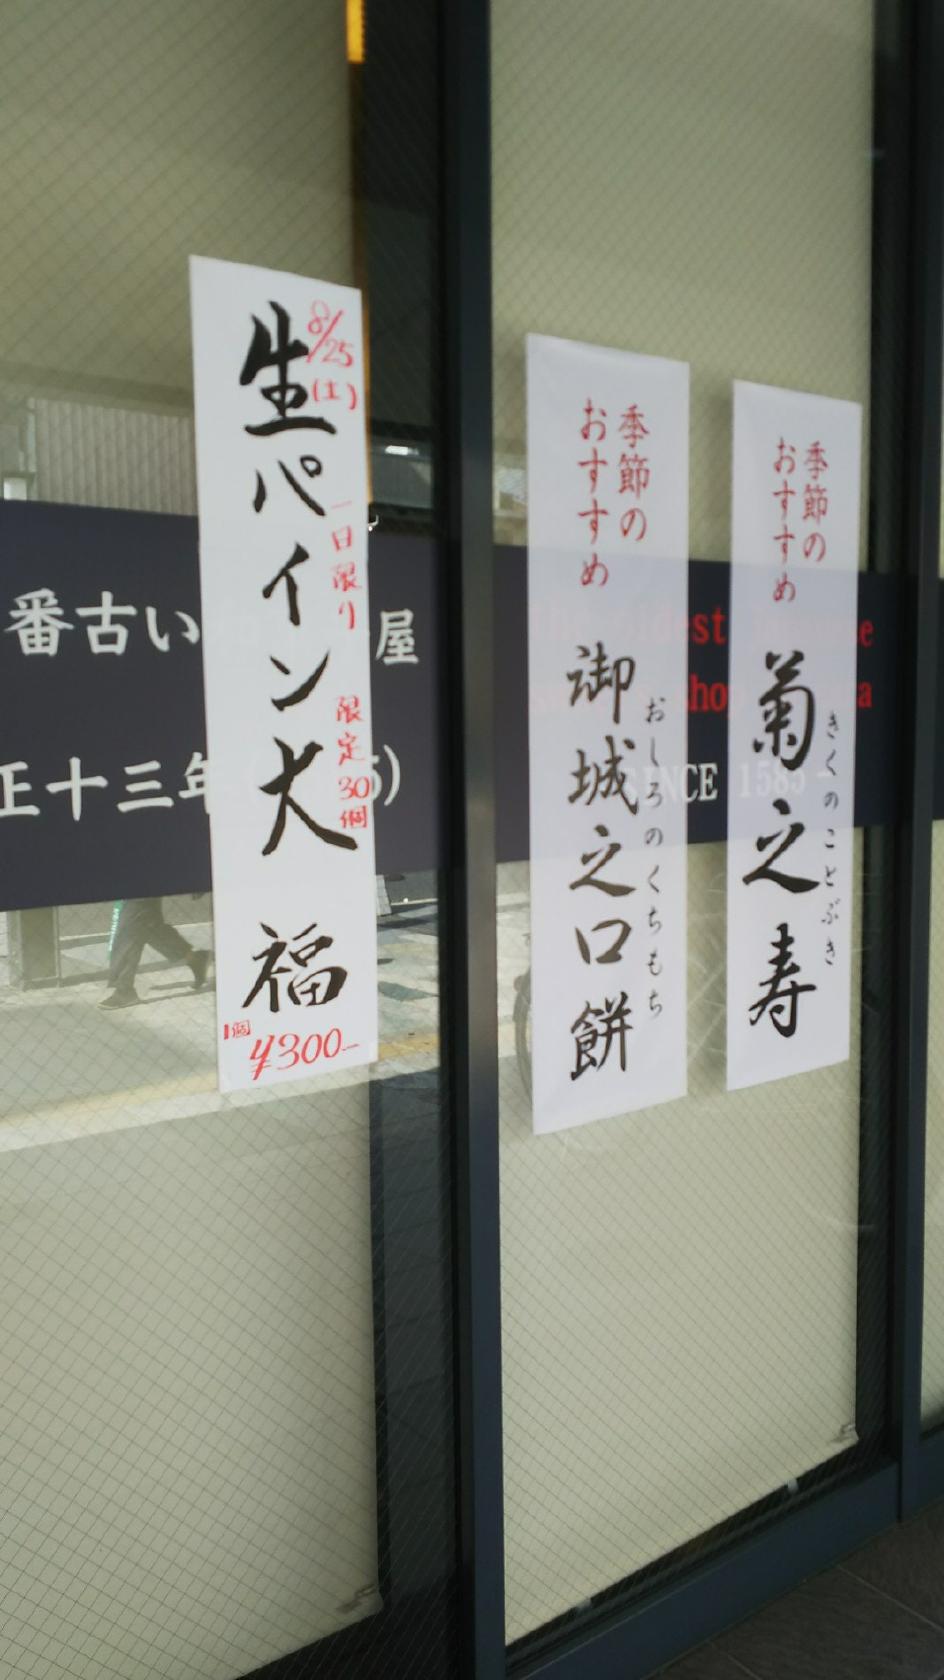 季節の
おすすめ
菊之寿
きくのことぶき
季節の
おすすめ
御城之口餅
おしろのくちもち
8/25
(土)
一日限り
限定30個
生パイン大福
1個
¥300-
番古い
屋
正十三年
SINCE 1585